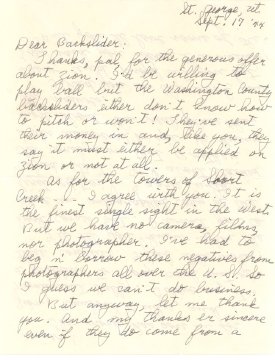 St. George, Ut
Sept. 19 '24
Dear Backslider:
Thanks, pal, for the generous offer
about Zion. I'd be willing to
play ball but the Washington County
backsliders either don't know how
to pitch or won't! They've sent
their money in and, like you, they
say it must either be applied on
Zion or not at all.
As for the towers of Short
Creek... I agree with you. It is
the finest single sight in the West
But we have no camera, films,
nor photographer. I've had to
beg n' borrow these negatives from
photographers all over the U.S. So
I guess we can't do business.
But anyway, let me thank
you. And my thanks er sincere
even if they do come from a